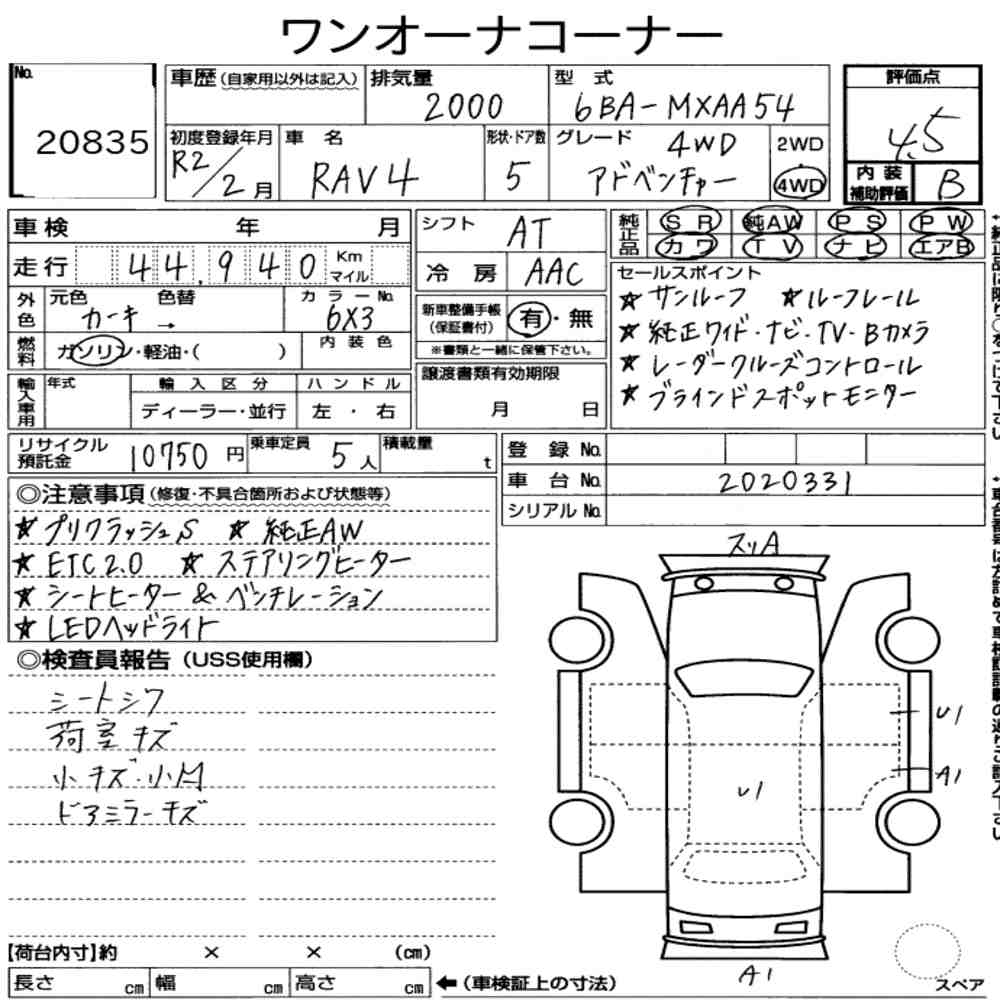 ワンオーナーコーナー
No. 20835
車歴（自家用以外は記入） 排気量 2000 型式 6BA-MXAA54
初度登録年月 R2/2月 車名 RAV4 形状・ドア数 5 グレード 4WD アドベンチャー 2WD 4WD
評価点 4.5
内装補助評価 B
車検 年 月
走行 44,940 Km マイル
外色 元色 カーキ 色替 → カラーNo. 6X3
燃料 ガソリン・軽油・（ ） 内装色
輸入車用 年式 輸入区分 ディーラー・並行 ハンドル 左・右
シフト AT
冷房 AAC
新車整備手帳（保証書付） 有・無
※書類と一緒に保管下さい。
譲渡書類有効期限
月 日
純正品 SR 純AW PS PW
カワ TV ナビ エアB
セールスポイント
★サンルーフ ★ルーフレール
★純正ワイド・ナビ・TV・Bカメラ
★レーダークルーズコントロール
★ブラインドスポットモニター
リサイクル預託金 10750円 乗車定員 5人 積載量 t
登録No.
車台No. 2020331
シリアルNo.
◎注意事項（修復・不具合箇所および状態等）
★プリクラッシュS ★純正AW
★ETC2.0 ★ステアリングヒーター
★シートヒーター&ベンチレーション
★LEDヘッドライト
◎検査員報告（USS使用欄）
シートシワ
荷室キズ
小キズ・小凹
ドアミラーキズ
スリA
U1
A1
U1
A1
スペア
【荷台内寸】約 × × （cm）
長さ cm 幅 cm 高さ cm ←（車検証上の寸法）